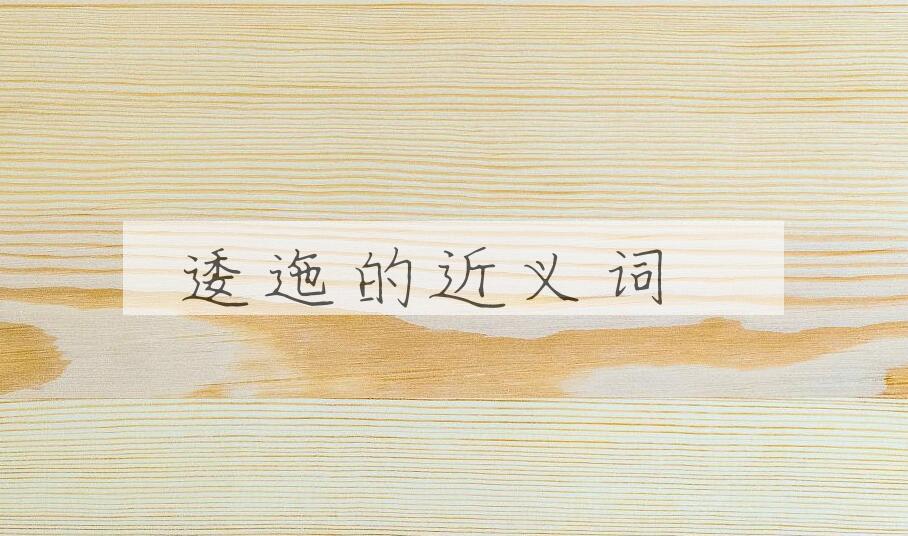 逶迤的近义词